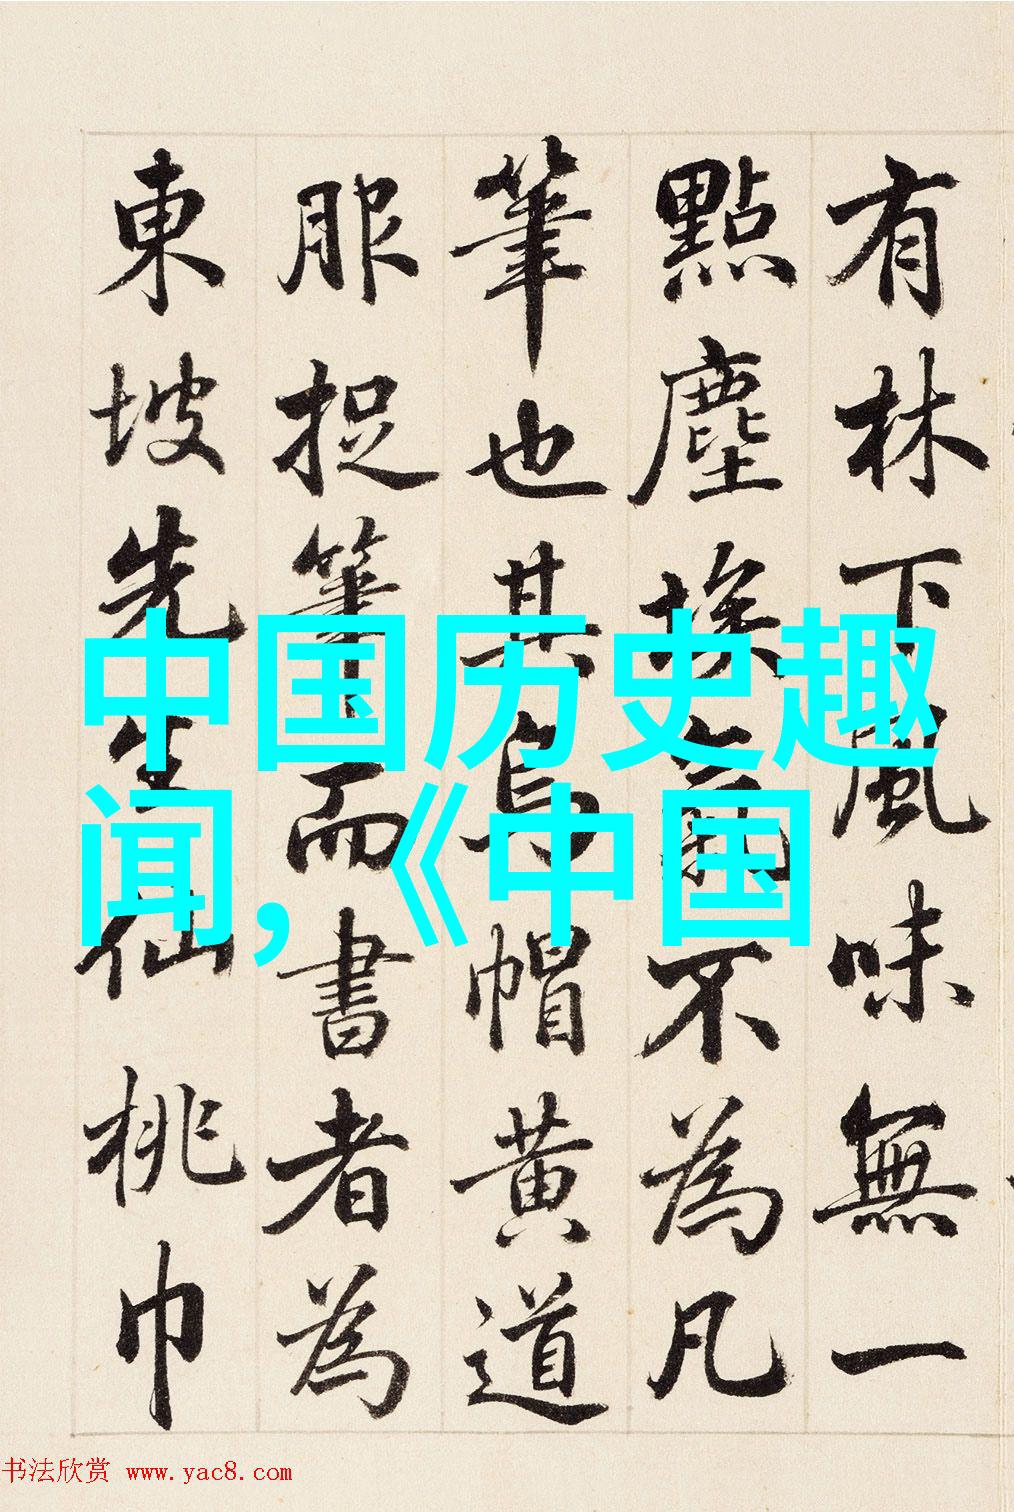 有林下風味無一
點塵埃氣不為凡
筆也其烏帽黃道
服捉筆而書者為
東坡先生仙桃巾
中国历史趣
闻,《中国
书法欣赏 www.yac8.com